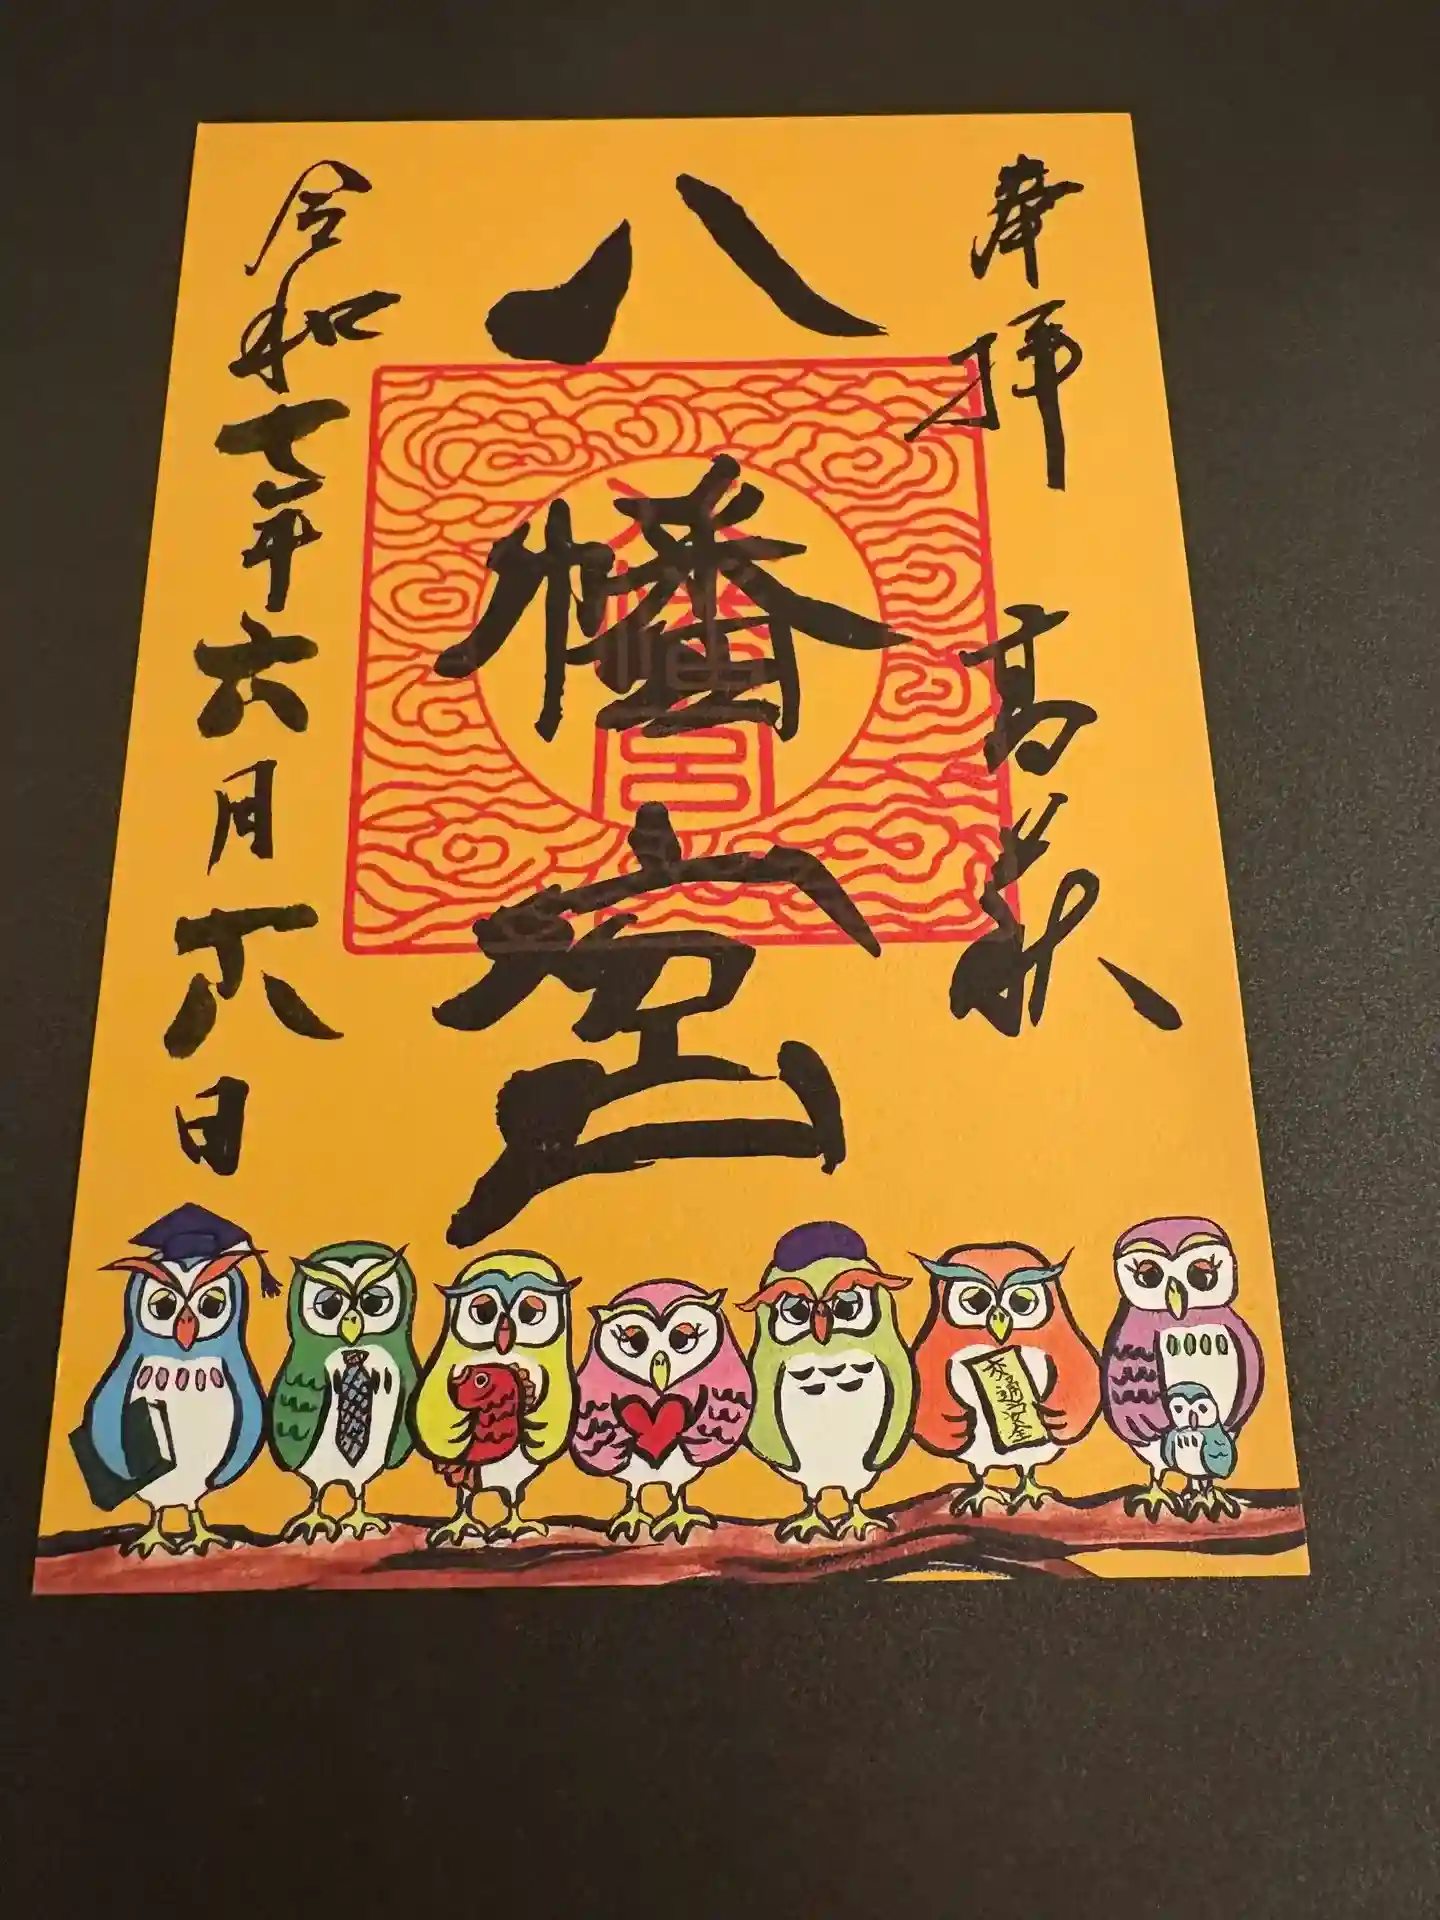 奉拝 高萩
八幡宮
令和七年六月 日
八幡宮
交通安全